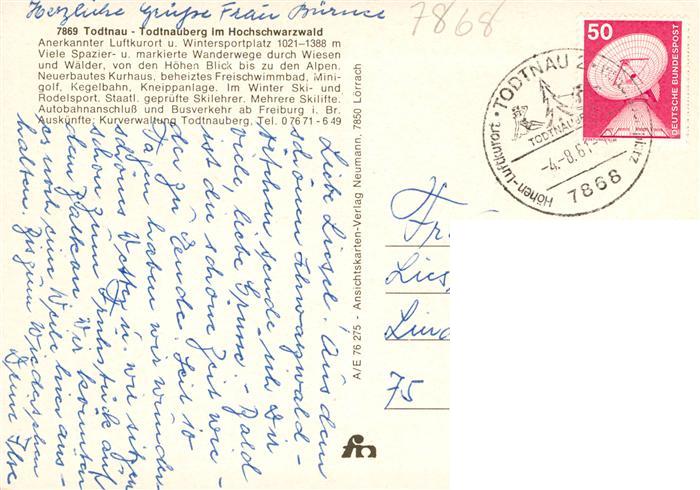 Herzliche Grüße Frau
7868
7869 Todtnau - Todtnauberg im Hochschwarzwald
Anerkannter Luftkurort u. Wintersportplatz 1021–1388 m
Viele Spazier- u. markierte Wanderwege durch Wiesen
und Wälder, von den Höhen Blick bis zu den Alpen.
Neuerbautes Kurhaus, beheiztes Freischwimmbad, Mini-
golf, Kegelbahn, Kneippanlage. Im Winter Ski- und
Rodelsport. Staatl. geprüfte Skilehrer. Mehrere Skilifte.
Autobahnanschluß und Busverkehr ab Freiburg i. Br.
Auskünfte: Kurverwaltung Todtnauberg, Tel. 0 76 71 - 6 49
Liebe Liesel! Aus dem
schönen Schwarzwald-
sende ich Dir
viele, liebe Grüsse. Bald
ist die schöne Zeit wie-
der zu Ende. Seit 10
Tagen haben wir wunder-
schönes Wetter u. wir sitzen
schon zum Frühstück auf
dem Balkon. Wir könnten
es noch eine Weile hier aus-
halten. Wiedersehen
Deine Ilse
A/E 76 275 - Ansichtskarten-Verlag Neumann, 7850 Lörrach
50
DEUTSCHE BUNDESPOST
TODTNAU 2
TODTNAUBERG
Höhen-Luftkurort
-4.-8.81
7868
Fr
Lies
Lind
75